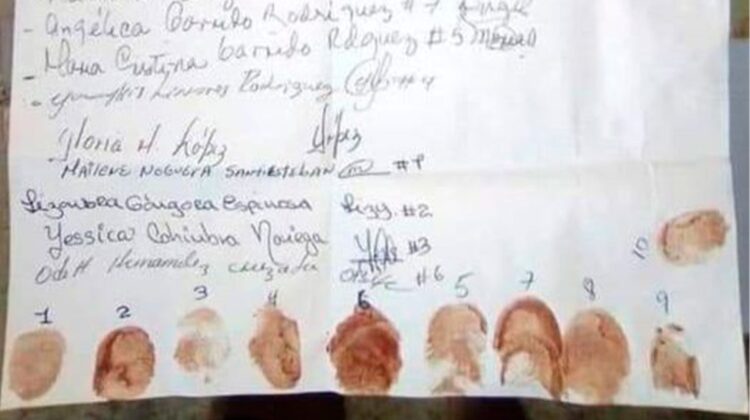 - Angélica Garrido Rodríguez #7 Angel
- Maria Cristina Garrido Rdguez #5
- Linares Rodriguez
Gloria M. López López
MAILENE NOGUERA SANTIESTEBAN #1
Lizandra Góngora Espinosa Lizy #2
Yessica Cohimbra Noriega #3
Odett Hernandez Cruzada #6
10
1 2 3 4 6 5 7 8 9